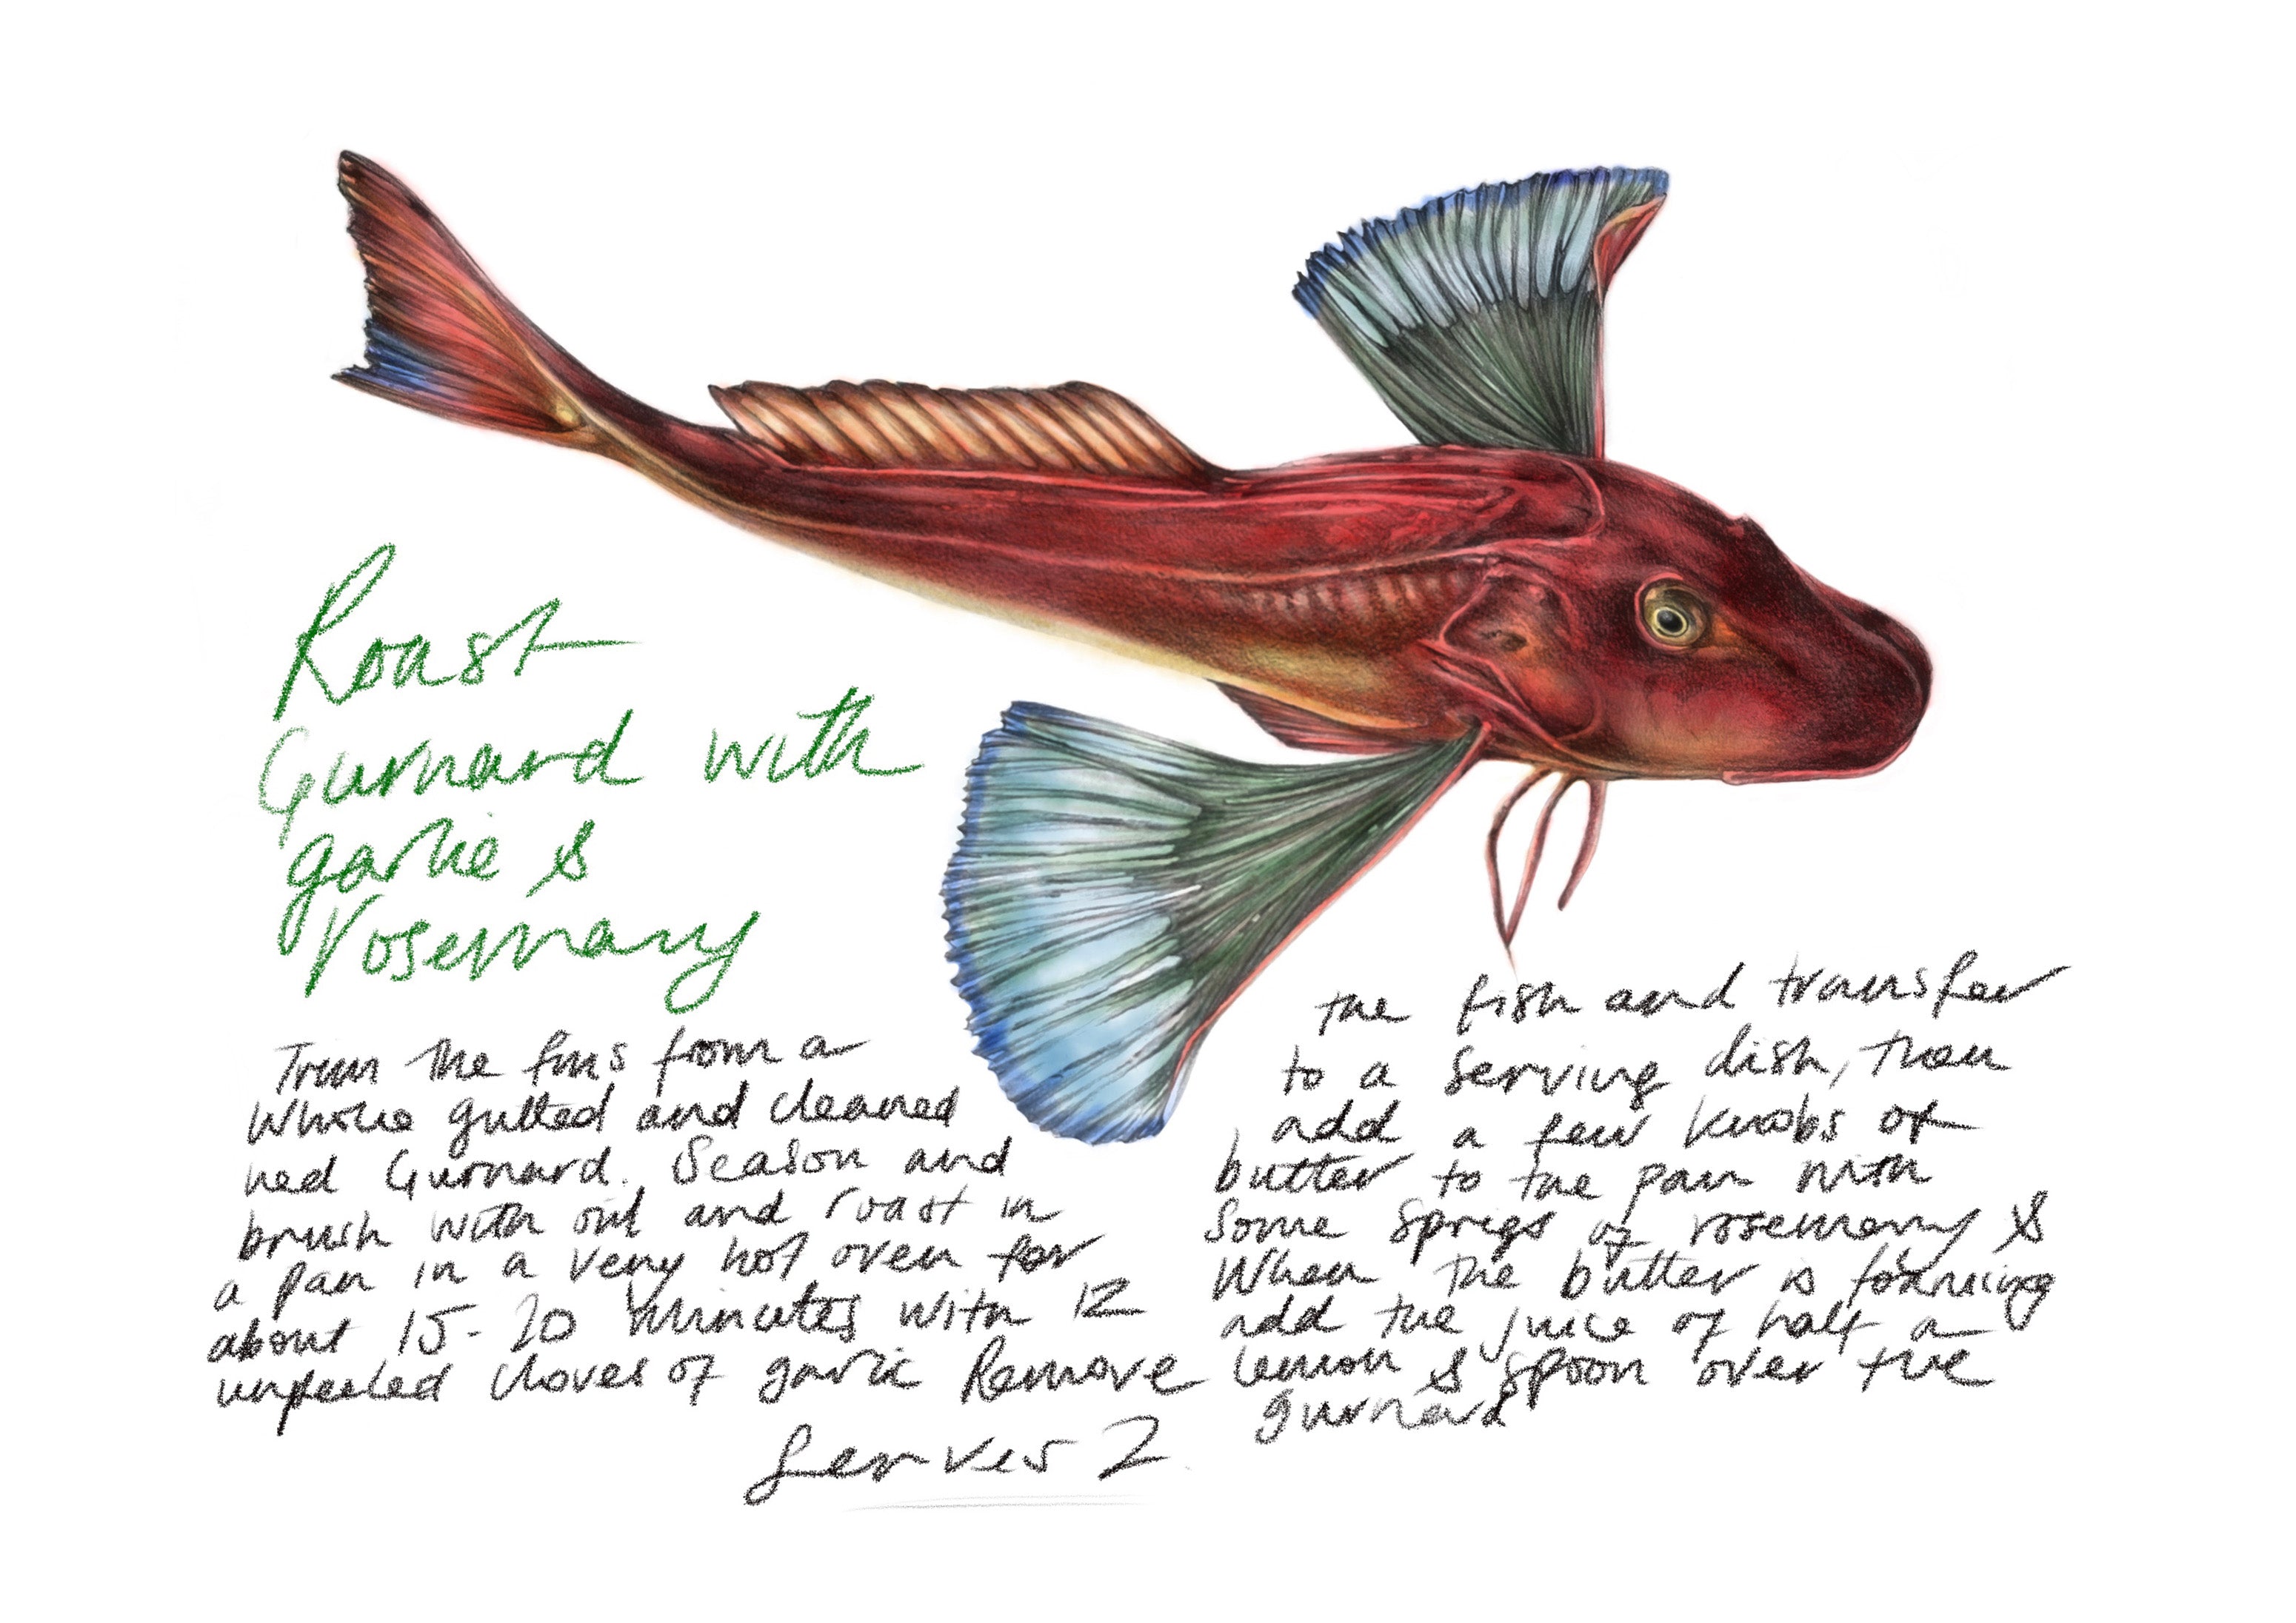 Roast
Gurnard with
garlic &
rosemary
Trim the fins from a
whole gutted and cleaned
red Gurnard. Season and
brush with oil and roast in
a pan in a very hot oven for
about 15-20 minutes with 12
unpeeled cloves of garlic Remove
the fish and transfer
to a serving dish, then
add a few knobs of
butter to the pan with
some sprigs of rosemary &
When the butter is foaming
add the juice of half a
lemon & spoon over the
gurnard
Serves 2